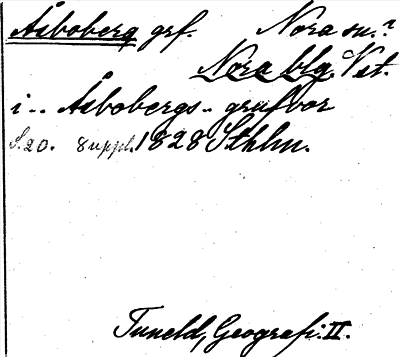 Åsboberg grf. Nora sn.?
Nora blg. Vst.
i -- Åsbobergs -- grufvor
S.20. Suppl. 1828 Sthlm.
Tuneld, Geografi. II.